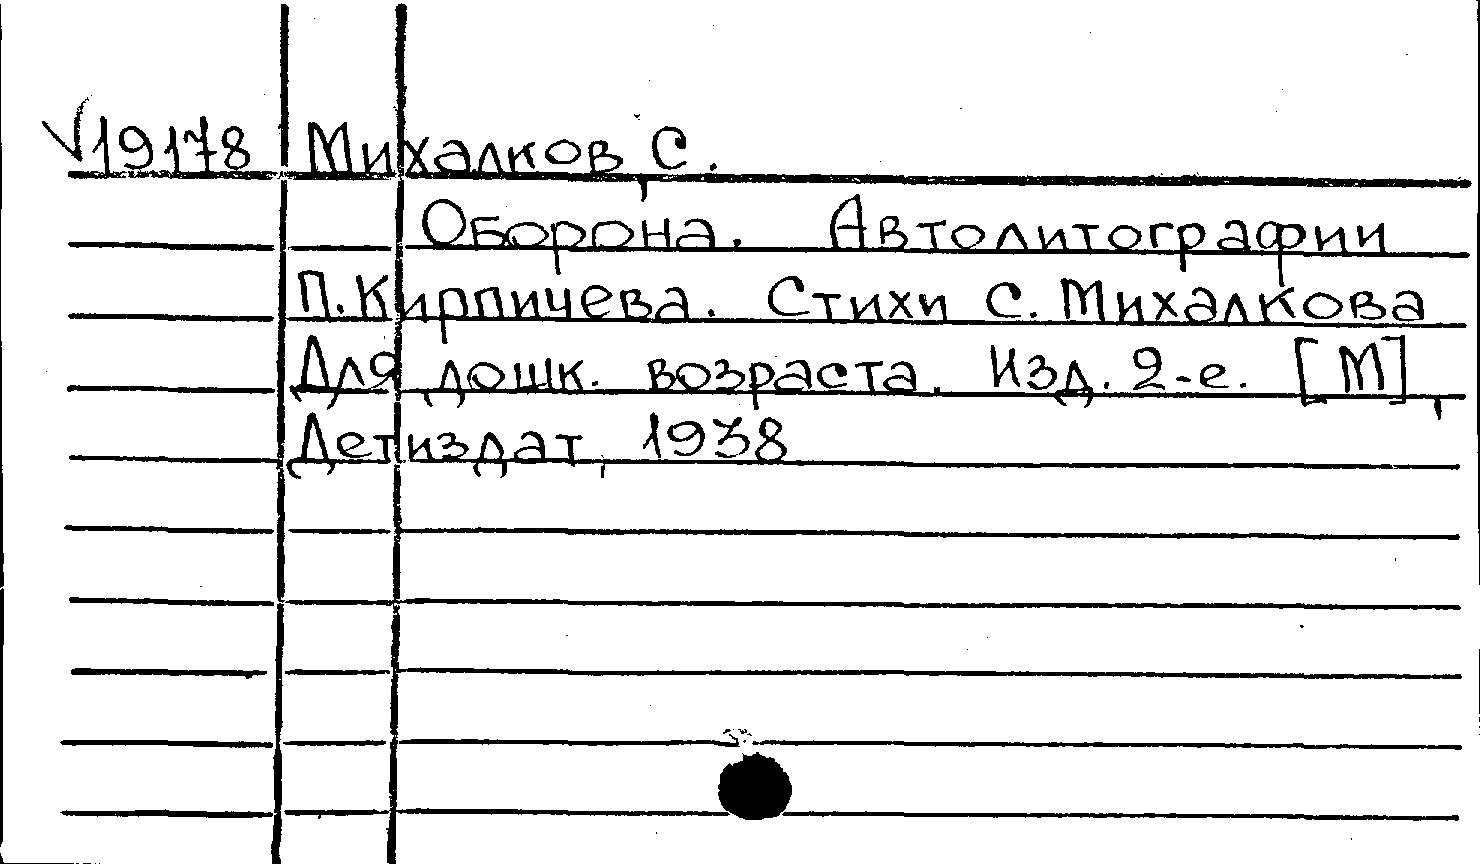 √19178 Михалков, С.
Оборона. Автолитографии
П. Кирпичева. Стихи С. Михалкова
Для дошк. возраста. Изд. 2-е. [М],
Детиздат, 1938